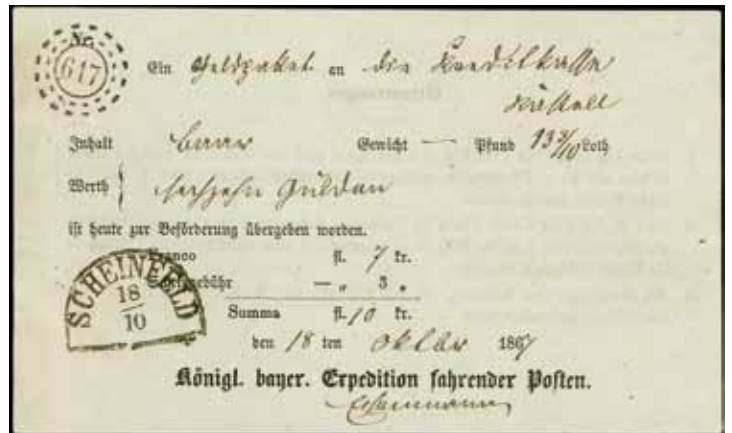 Nr.
617
Ein Geldpaket an die Kreditkasse
Castell
Inhalt baar Gewicht — Pfund 13 3/10 Loth
Werth } sechzehn Gulden
ist heute zur Beförderung übergeben worden.
Franco fl. 7 kr.
gebühr — „ 3 „
Summa fl. 10 kr.
SCHEINFELD
18
10
den 18 ten Oktbr 1867
Königl. bayer. Expedition fahrender Posten.